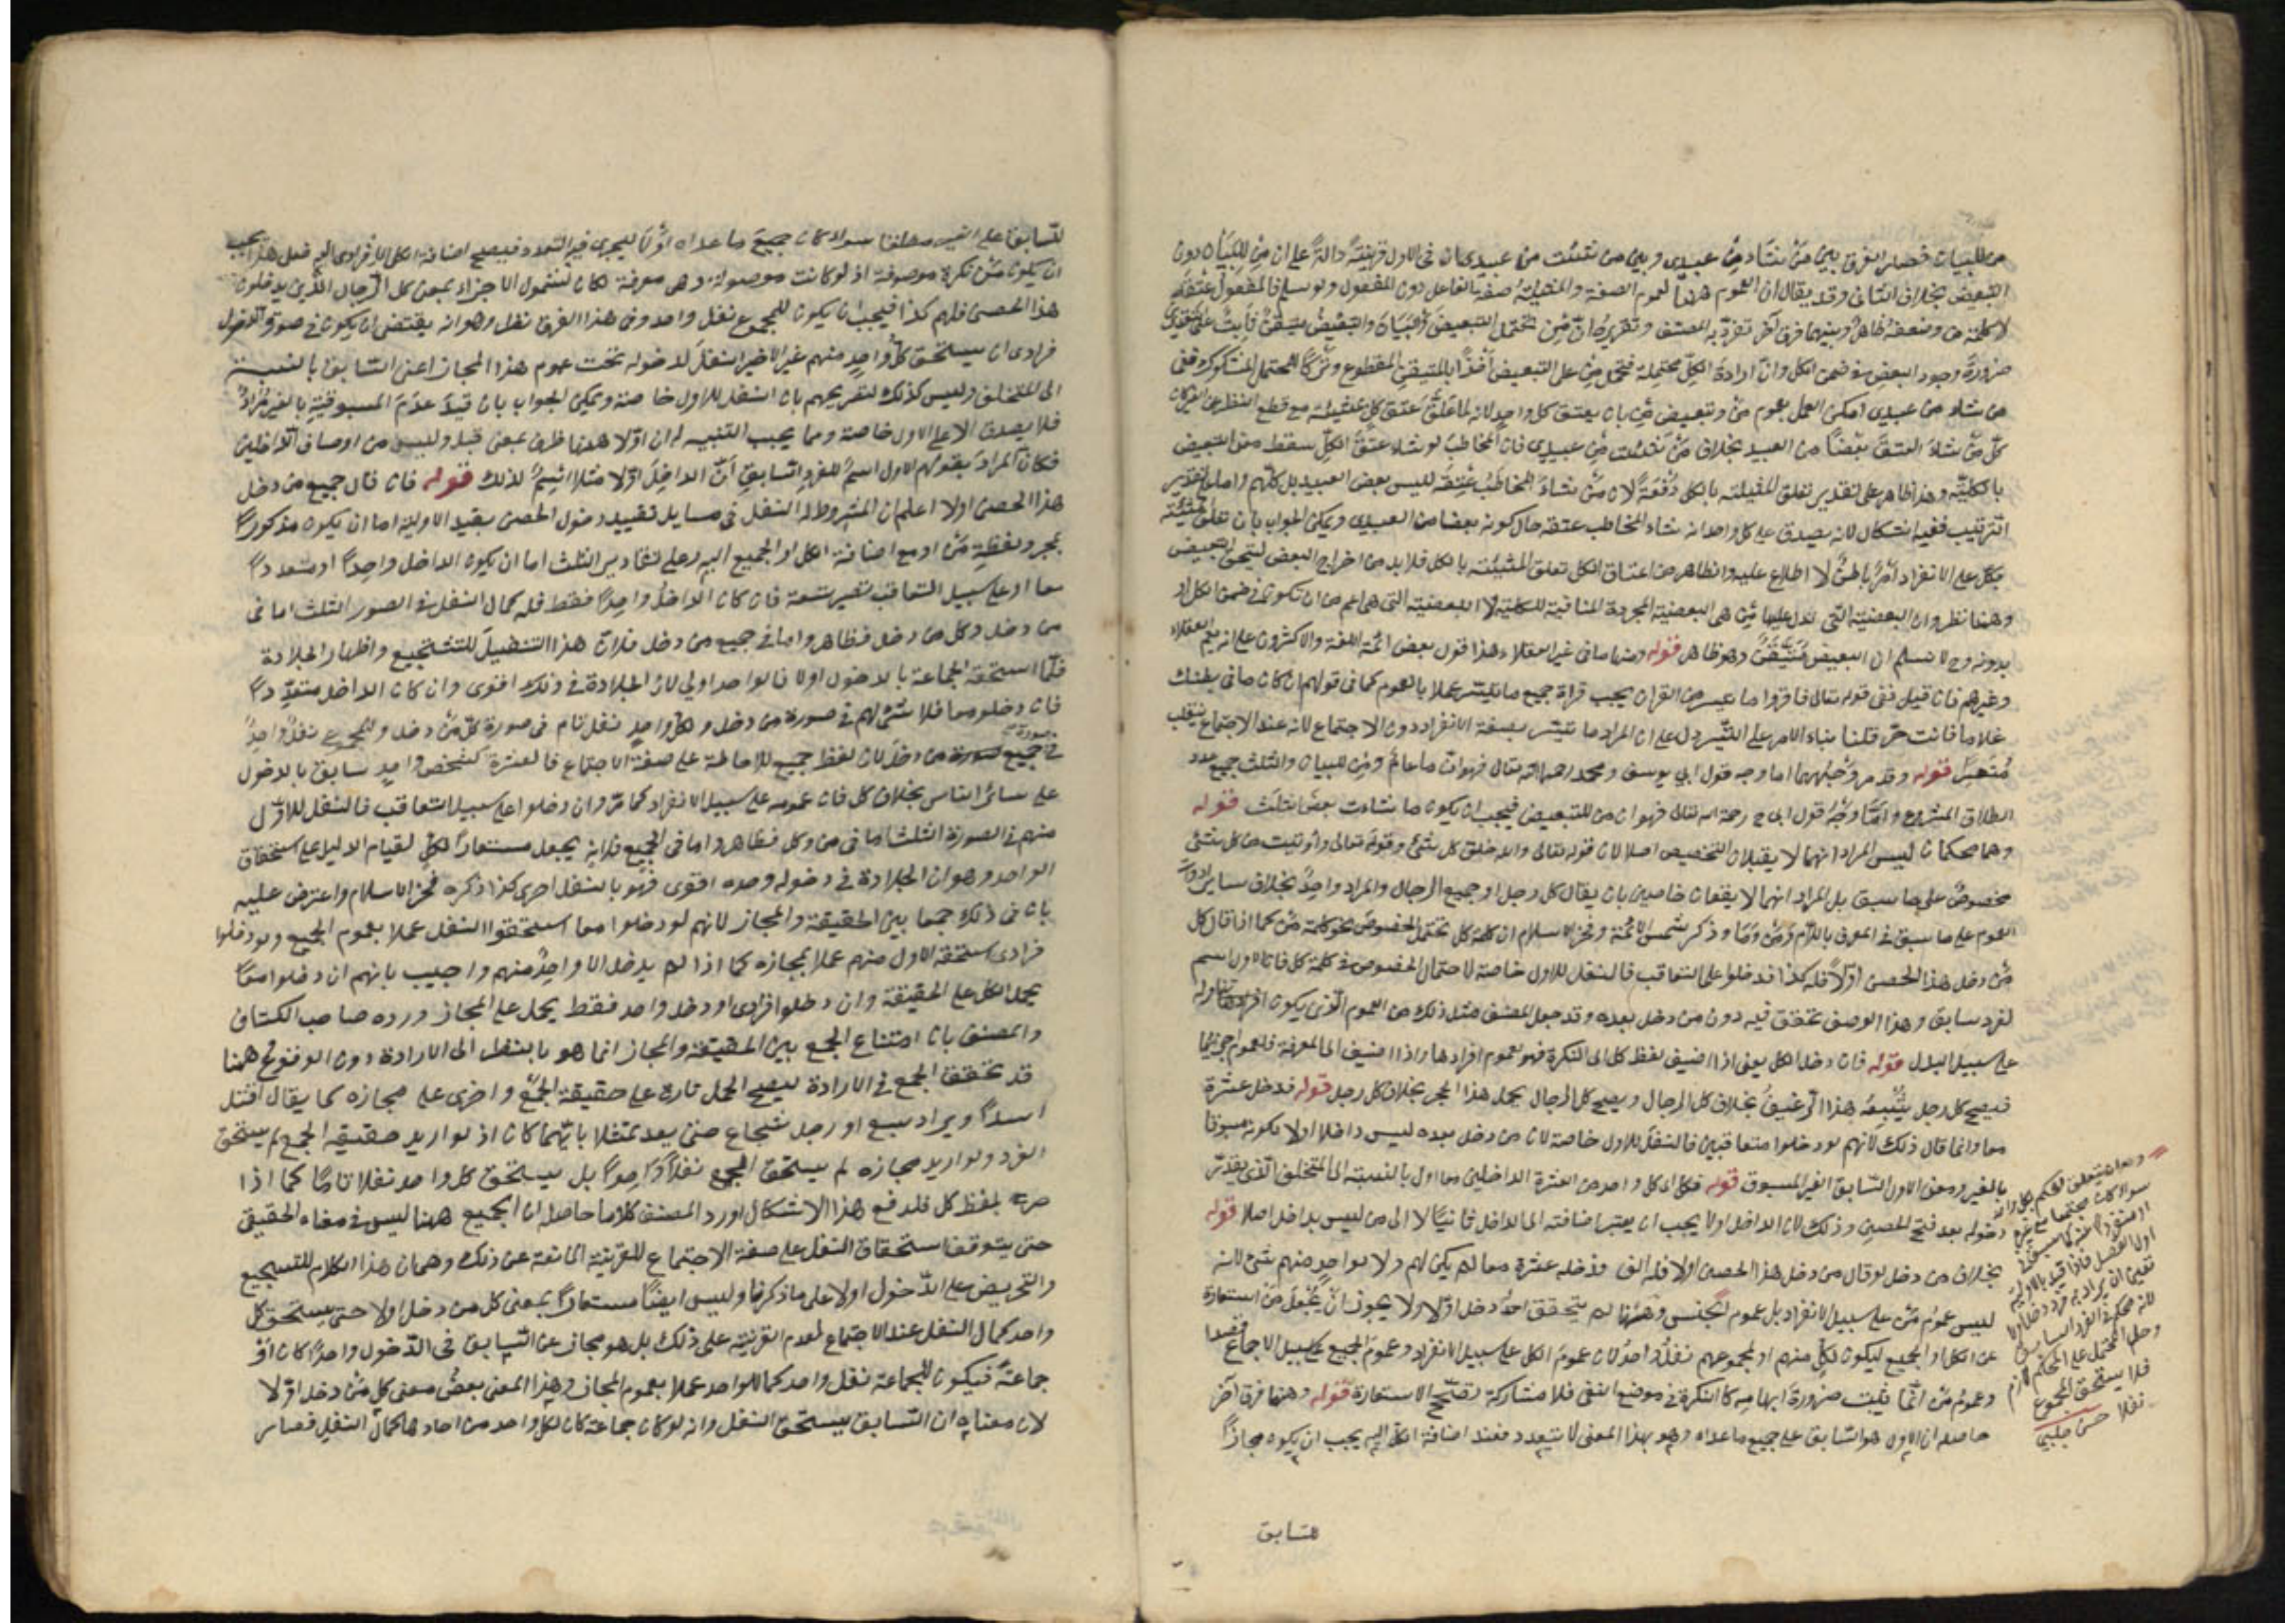 من للبيان فحصل الفرق بين من شاء من عبيدى وبين من شئت من عبيدى بان فى الاول قرينةً دالةً على ان مِن للبيان دون
التبعيض بخلاف الثانى وقد يقال ان العموم ههنا لعموم الصفة والمشيئة صفة الفاعل دون المفعول ولو سلم فالمفعول عتقه
لا كلمة من وضعفه ظاهرٌ وبينهما فرق آخر تفرّد به المصنف وتقريره انّ مِن تحتمل التبعيض والبيان والتبعيض متيقّن ثابت على التقديرين
ضرورة وجود البعض فى ضمن الكل وانّ ارادة الكلِّ محتملة فتحمل مِن على التبعيض اخذًا بالمتيقن المقطوع وتركًا للمحتمل المشكوك ففى
من شاء من عبيدى امكن العمل بعموم مَن وتبعيض مِن بان يعتق كل واحدٍ لانه لما علّق عتق كلٍّ بمشيئته مع قطع النظر عن الغير كان
كلّ من شاء العتقَ بعضًا من العبيد بخلاف مَن شئت مِن عبيدى فان المخاطب لو شاء عتقَ الكلِّ سقط معنى التبعيض
بالكليّة وهذا ظاهر على تقدير تعلق المشيئة بالكل دُفْعَةً لان مَن شاء المخاطب عِتقَه ليس بعض العبيد بل كلّهم واما على تقدير
الترتيب ففيه اشكال لانه يصدق على كل واحد انه شاء المخاطب عتقه حال كونه بعضا من العبيدى ويمكن الجواب بان تعلق مشيئته
بكلٍّ على الانفراد امرٌ باطنٌ لا اطلاع عليه والظاهر من اعتاق الكل تعلق المشيئة بالكل فلا بد من اخراج البعض ليتحقق التبعيض
وههنا نظر وهو ان البعضية التى تدل عليها مِن هى البعضية المجردة المنافية للكلية لا البعضية التى هى اعم من ان تكون فى ضمن الكل او
بدونه وح لا نسلم ان التبعيض متيقّنٌ وهو ظاهر قوله ومنها ما فى غير العقلاء هذا قول بعض ائمة اللغة والاكثرون على انه يعم العقلاء
وغيرهم فان قيل ففى قوله تعالى فاقرؤا ما تيسر من القرآن يجب قراءة جميع ما تيسر عملا بالعموم كما فى قولهم ان كان ما فى بطنك
غلاما فانت حرّة قلنا بناء الامر على التيسر دل على ان المراد ما تيسّر بصفة الانفراد دون الاجتماع لانه عند الاجتماع ينقلب
مُتعسّر قوله وقد مر وَجْهُهما اما وجه قول ابى يوسف ومحمد رحمهما الله تعالى فهو انّ ما عامٌ ومِن للبيان والثلث جميع عدد
الطلاق المشروع وامّا وَجْهُ قول ابى ح رحمة الله تعالى فهو ان من للتبعيض فيجب ان يكون ما شاءت بعضَ الثلث قوله
وهما محكمان ليس المراد انهما لا يقبلان التخصيص اصلا لان قوله تعالى والله خلق كل شئ وقوله تعالى وأوتيت من كل شئ
مخصوصٌ على ما سبق بل المراد انهما لا يقعان خاصين بان يقال كل رجل او جميع الرجال والمراد واحدٌ بخلاف سائر ادوات
العموم على ما سبق فى المعرف باللام ومَن ومَا وذكر شمس الائمة وفخر الاسلام ان كلمة كل تحتمل الخصوص نحو كلمة مَن كما اذا قال كل
مَن دخل هذا الحصن اوّلًا فله كذا فدخلوا على التعاقب فالنفل للاول خاصة لاحتمال الخصوص فى كلمة كل فان الاول اسم
لفرد سابق وهذا الوصف تحقق فيه دون من دخل بعده وقد جعل المصنف مثل ذلك من العموم الّذى يكون افراده تتناوله
على سبيل البدل قوله فان دخل الكل يعنى اذا اضيف لفظ كل الى النكرة فهو لعموم افرادها واذا اضيف الى المعرفة فلعموم اجزائها
فيصح كل رجل يشبعه هذا الرغيفُ بخلاف كل الرجال ويصح كل الرجال يحمل هذا الحجر بخلاف كل رجل قوله فدخل عشرة
معا وانما قال ذلك لانهم لو دخلوا متعاقبين فالنفل للاول خاصة لان من دخل بعده ليس داخلا اولا لكونه مسبوقا
بالغير ومعنى الاول السّابق الغير المسبوق قوله فكل اى كل واحد من العشرة الداخلين معا اول بالنسبة الى المتخلف الّذى يقدّر
دخوله بعد فتح الحصن وذلك لان الداخل اولا يجب ان يعتبر اضافته الى الداخل ثانيًا لا الى من ليس بداخل اصلا قوله
بخلاف من دخل لو قال من دخل هذا الحصن اولا فله الف فدخله عشرة معا لم يكن لهم ولا لواحد منهم شئ لانه
ليس عموم مَن على سبيل الانفراد بل عموم الجنس وههنا لم يتحقق احدٌ دخل اوّلا ولا يجوز انْ يُجْعَلَ مَن استعارة
عن الكل او الجميع ليكون لكل منهم او لمجموعهم نفلٌ واحدٌ لان عمومَ الكل على سبيل الانفراد وعمومَ الجميع على سبيل الاجتماع قصدا
وعمومُ مَن انّما يثبت ضرورةَ ابهامِه كالنكرة فى موضع النفى فلا مشاركة تصحّح الاستعارة قوله وههنا فرق آخر
حاصله ان الاول هو السّابق على جميع ما عداه وهو بهذا المعنى لا يتعدد فعند اضافة الكل اليه يجب ان يكون مجازًا
للسّابق
فلا يستحق المجموع
نفلا حسن چلبى
للسّابق على الغير مطلقا سواء كان جميعَ ما عداه اوّلًا ليجرى فيه التعدد فيصح اضافة الكل الافرادى اليه فعلى هذا يجب
ان يكون مَن نكرة موصوفة اذ لو كانت موصولة وهى معرفة لكان لشمول الاجزاء بمعنى كل الرجال الّذين يدخلون
هذا الحصن فلهم كذا فيجب ان يكون للمجموع نفل واحد وفى هذا الفرق نظر وهو انه يقتضى ان يكون فى صورة الدخول
فرادى ان يستحق كلُّ واحدٍ منهم غير الاخير النفلَ لدخوله تحت عموم هذا المجاز اعنى السّابق بالنسبة
الى المتخلف وليس كذلك لتصريحهم بان النفل للاول خاصة ويمكن الجواب بان قيدَ عدمِ المسبوقية بالغير مُرادٌ
فلا يصدق الا على الاول خاصة ومما يجب التنبيه له ان اوّلا ههنا ظرف بمعنى قبل وليس من اوصاف الداخلين
فكان المراد بقولهم الاول اسمٌ للفرد السّابق أنّ الداخلَ اوّلا مثلا اسْمٌ لذلك قوله فان قال جميع من دخل
هذا الحصن اولا اعلم ان المشروط له النفل فى مسايل تقييد دخول الحصن بقيد الاولية اما ان يكون مذكورًا
بمجرد لفظةِ مَن او مع اضافة الكل او الجميع اليه وعلى التقادير الثلث اما ان يكون الداخل واحدًا او متعددًا
معا او على سبيل التعاقب تصير تسعة فان كان الداخلُ واحِدًا فقط فله كمال النفل فى الصور الثلث اما فى
من دخل وكل من دخل فظاهر واما فى جميع من دخل فلانّ هذا التنفيلَ للتشجيع واظهار الجلادة
فلمّا استحقّه الجماعة بالدخول اولا فالواحد اولى لان الجلادة فى ذلك اقوى وان كان الداخل متعدّدًا
فان دخلوا معا فلا شئ لهم فى صورة من دخل ولكل واحدٍ نفل تام فى صورة كلّ مَن دخل وللمجموع نفلٌ واحدٌ
فى صورة جميع من دخل لان لفظ جميع للاحاطة على صفة الاجتماع فالعشرة كشخص واحدٍ سابق بالدخول
على سائر الناس بخلاف كل فان عمومه على سبيل الانفراد كما مرّ وان دخلوا على سبيل التعاقب فالنفل للاوّل
منهم فى الصورة الثلث اما فى من وكل فظاهر واما فى الجميع فلانه يجعل مستعارًا لكلٍّ لقيام الدليل على استحقاق
الواحد وهو ان الجلادة فى دخوله وحده اقوى فهو بالنفل احرى كذا ذكره فخر الاسلام واعترض عليه
بان فى ذلك جمعا بين الحقيقة والمجاز لانهم لو دخلوا معا استحقوا النفل عملا بعموم الجميع ولو دخلوا
فرادى استحقه الاول منهم عملا بمجازه كما اذا لم يدخل الا واحِدٌ منهم واجيب بانهم ان دخلوا معًا
يحمل الكل على الحقيقة وان دخلوا فرادى او دخل واحد فقط يحمل على المجاز ورده صاحب الكشاف
والمصنف بان امتناع الجمع بين الحقيقة والمجاز انما هو بالنظر الى الارادة دون الوقوع وههنا
قد تحقق الجمع فى الارادة ليصح الحمل تارة على حقيقة الجمع واخرى على مجازه كما يقال اقتل
اسدًا ويراد سبع او رجل شجاع حتى يعد ممتثلا بايّهما كان اذ لو اريد حقيقة الجمع لم يستحق
الفرد ولو اريد مجازه لم يستحق الجميع نفلًا وَاحِدًا بل يستحق كل واحد نفلا تامًا كما اذا
صرح بلفظ كل فلدفع هذا الاشكال اورد المصنف كلاما حاصله ان الجميع ههنا ليس فى معناه الحقيقى
حتى يتوقف استحقاق النفل على صفة الاجتماع للقرينة المانعة عن ذلك وهى ان هذا الكلام للتشجيع
والتحريض على الدّخول اولا على ما ذكرنا وليس ايضًا مستعارًا بمعنى كل من دخل اولا حتى يستحق كل
واحد كمال النفل عند الاجتماع لعدم القرينة على ذلك بل هو مجاز عن السّابق فى الدّخول واحدًا كان اوْ
جماعةً فيكون للجماعة نفل واحد كما للواحد عملا بعموم المجاز وهذا المعنى بعضُ معنى كلِ مَن دخل اوّلا
لان معناه ان السّابق يستحق النفل وانه لو كان جماعة كان لكل واحد من احادها كمالُ النفل فصار